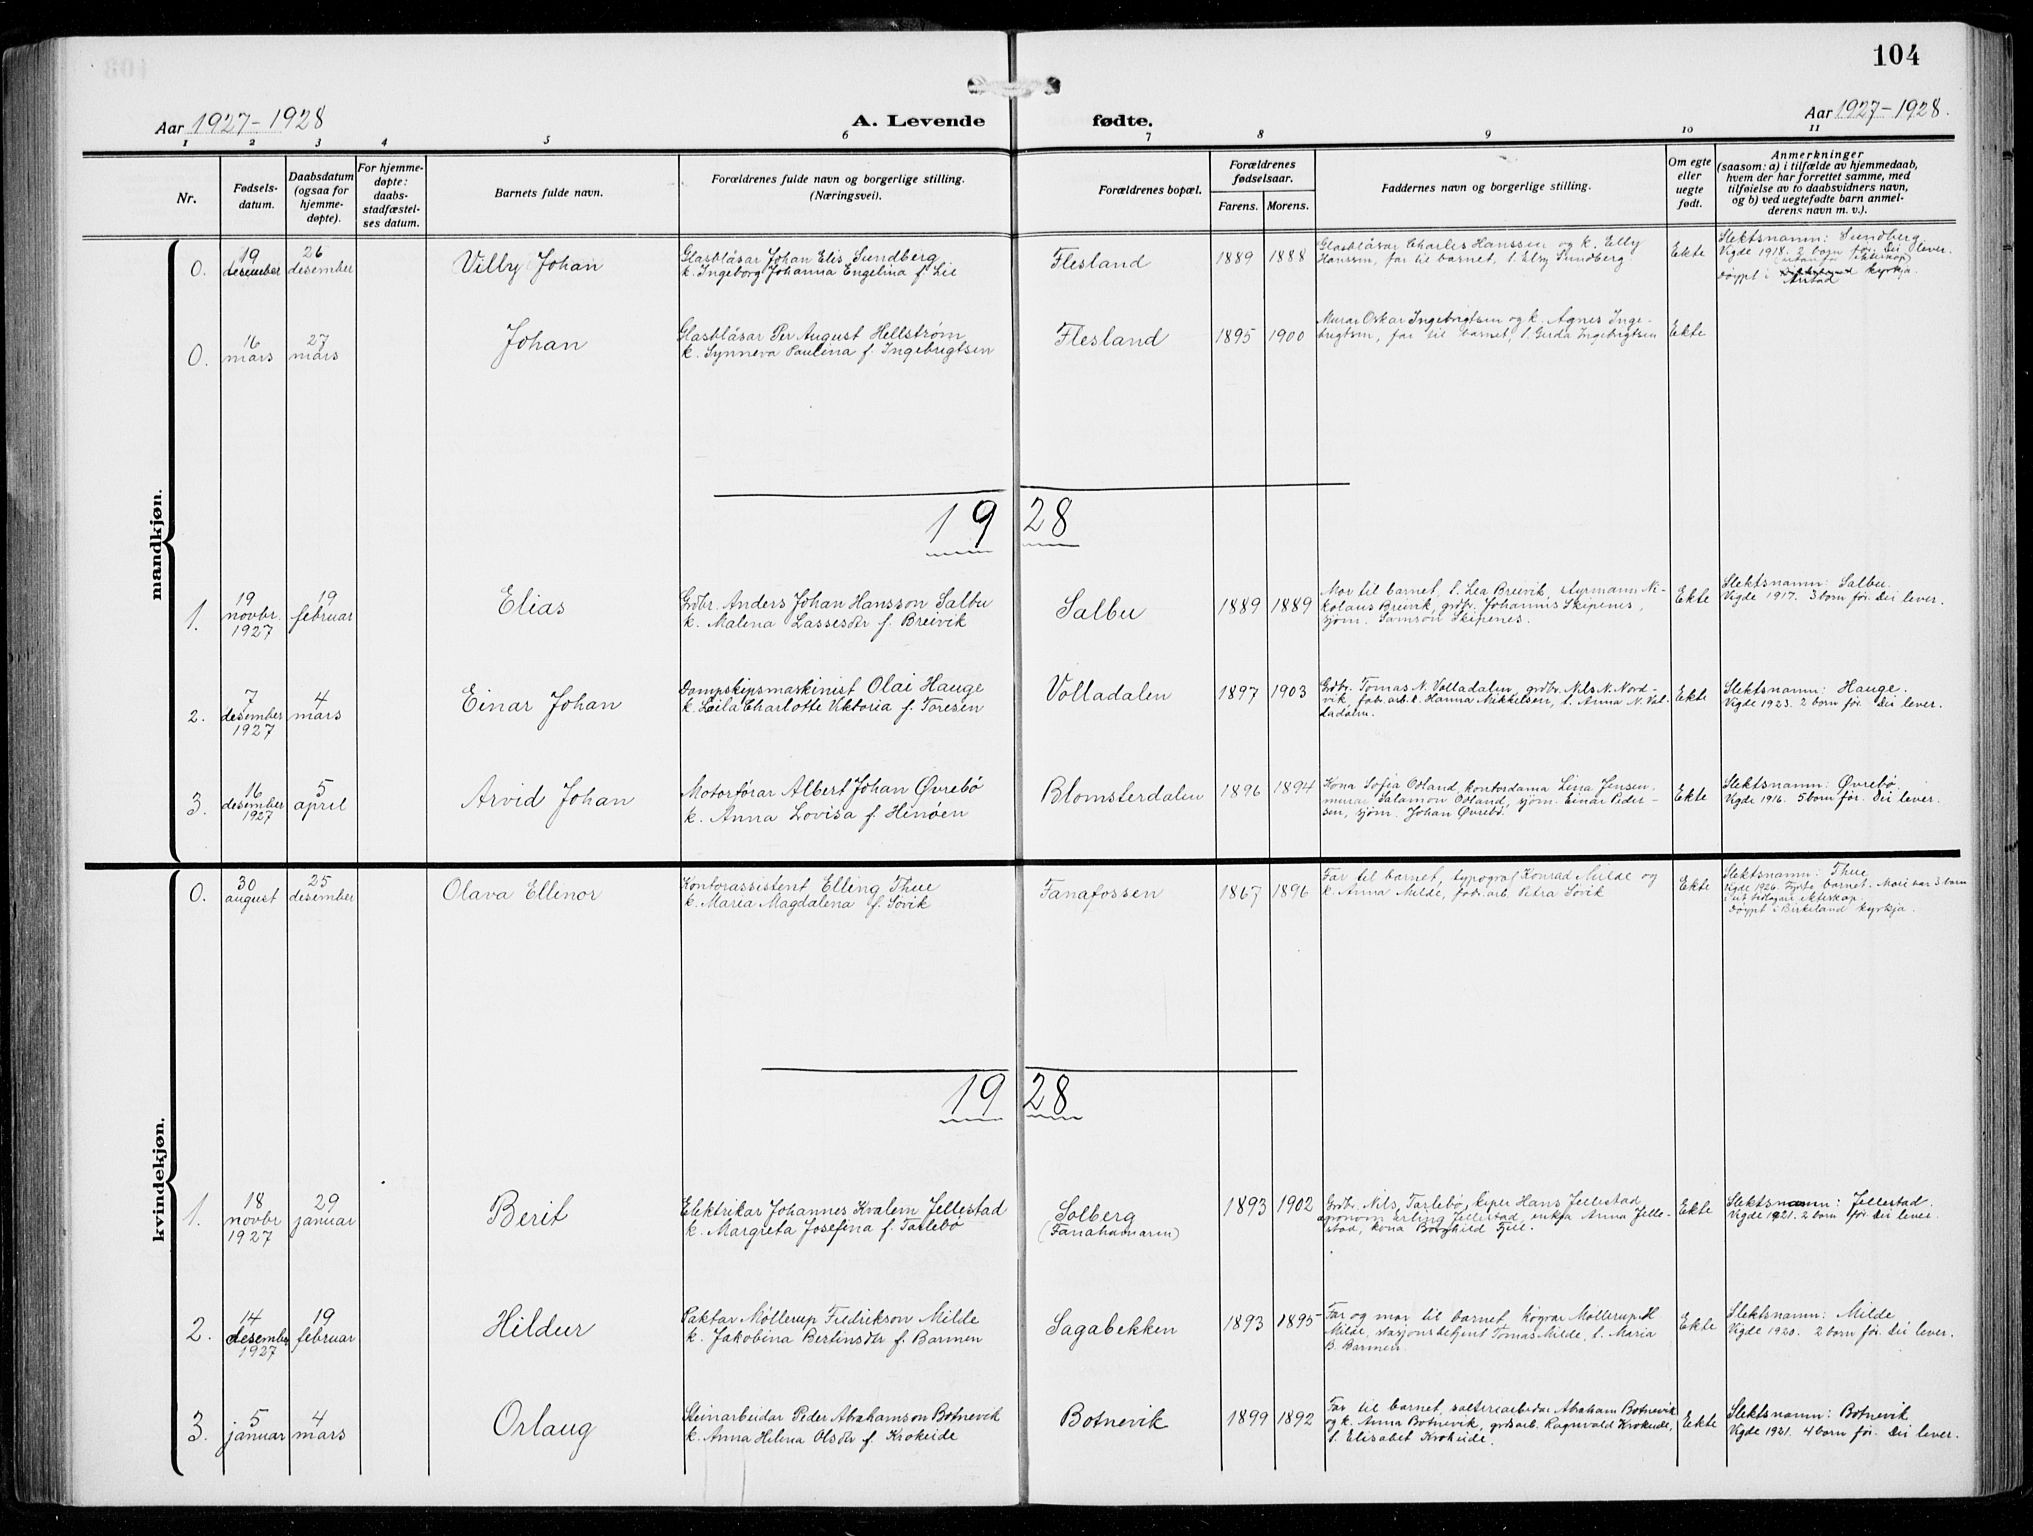 104
Aar 1927-1928
A. Levende fødte.
Aar 1927-1928.
1 2 3 4 5 6 7 8 9 10 11
Nr.
Fødsels-
datum.
Daabsdatum
(ogsaa for
hjemme-
døpte).
For hjemme-
døpte:
daabs-
stadfæstel-
ses datum.
Barnets fulde navn.
Forældrenes fulde navn og borgerlige stilling.
(Næringsvei).
Forældrenes bopæl.
Forældrenes
fødselsaar.
Farens. Morens.
Faddernes navn og borgerlige stilling.
Om egte
eller
uegte
født.
Anmerkninger
(saasom: a) i tilfælde av hjemmedaab,
hvem der har forrettet samme, med
tilføielse av to daabsvidners navn,
og b) ved uegtefødte barn anmel-
derens navn m. v.).
mandkjøn.
0.
19
desember
26
desember
Villy Johan
Glasblåsar Johan Elis Sundberg
k. Ingeborg Johanna Engelina f. Lie
Flesland
1889 1888
Glasblåsar Charles Hanssen og k. Elly
Hanssen, far til barnet, f. Elsy Sundberg
Ekte
Slektsnamn: Sundberg
Vigde 1918. 2 born før. Dei lever.
Døypt i Årstad kyrkja.
0.
16
mars
27
mars
Johan
Glasblåsar Per August Hellstrøm
k. Synneva Paulina f. Ingebrigtsen
Flesland
1895 1900
Murar Oskar Ingebrigtsen og k. Agnes Inge-
brigtsen, far til barnet, f. Gerda Ingebrigtsen
Ekte
1928
1.
19
novbr.
1927
19
februar
Elias
Grdbr. Anders Johan Hansson Salbu
k. Malena Lassesdtr f. Breivik
Salbu
1889 1889
Mor til barnet, f. Lea Breivik, styrmann Ni-
kolaus Breivik, grdbr. Johannes Skipenes,
sjøm. Samson Skipenes.
Ekte
Slektsnamn: Salbu.
Vigde 1917. 3 born før. Dei lever.
2.
7
desember
1927
4
mars
Einar Johan
Dampskipsmaskinist Olai Hauge
k. Leila Charlotte Viktoria f. Toresen
Volladalen
1897 1903
Grdbr. Tomas N. Volladalen, grdbr. Nils N. Nord-
vik, fabr.arb. k. Hanna Mikkelsen, f. Anna N. Vol-
ladalen.
Ekte
Slektsnamn: Hauge.
Vigde 1923. 2 born før. Dei lever.
3.
16
desember
1927
5
april
Arvid Johan
Motorførar Albert Johan Øvrebø
k. Anna Lovisa f. Henøen
Blomsterdalen
1896 1894
Kona Sofia Odland, kontordama Lina Jensen,
murar Salamon Odland, sjøm. Einar Peder-
sen, sjøm. Johan Øvrebø.
Ekte
Slektsnamn: Øvrebø.
Vigde 1916. 5 born før. Dei lever.
kvindekjøn.
0.
30
august
25
desember
Olava Ellenor
Kontorassistent Elling Thue
k. Maria Magdalena f. Søvik
Fanafossen
1867 1896
Far til barnet, typograf Konrad Milde og
k. Anna Milde, fabr.arb. Petra Søvik
Ekte
Slektsnamn: Thue
Vigde 1926. Fyrste barnet. Mori har 3 born
i eit tidlegare ekteskap.
Døypt i Birkeland kyrkja.
1928
1.
18
novbr
1927
29
januar
Berit
Elektrikar Johannes Kvalem Jellestad
k. Margreta Josefina f. Tarlebø
Solberg
(Fanahamaren)
1893 1902
Grdbr. Nils Tarlebø, keper Hans Jellestad,
agronom Erling Jellestad, enkja Anna Jelle-
stad, kona Borghild Fjell.
Ekte
Slektsnamn: Jellestad.
Vigde 1921. 2 born før. Dei lever.
2.
14
desember
1927
19
februar
Hildur
Paktar Møllerup Fredrikson Milde
k. Jakobina Bertinsdtr f. Barmen
Sagabekken
1893 1895
Far og mor til barnet, Møllerup H
Milde, stasjonsbetjent Tomas Milde, f. Maria
B. Barmen.
Ekte
Slektsnamn: Milde
Vigde 1920. 2 born før. Dei lever.
3.
5
januar
4
mars
Orlaug
Steinarbeidar Peder Abrahamson Botnevik
k. Anna Helena Olsdtr f. Krokeide
Botnevik
1899 1892
Far til barnet, Abraham Botnevik
og k. Anna Botnevik, grdsarb. Ragnvald Krokeide,
f. Elisabet Krokeide.
Ekte
Slektsnamn: Botnevik.
Vigde 1921. 4 born før. Dei lever.